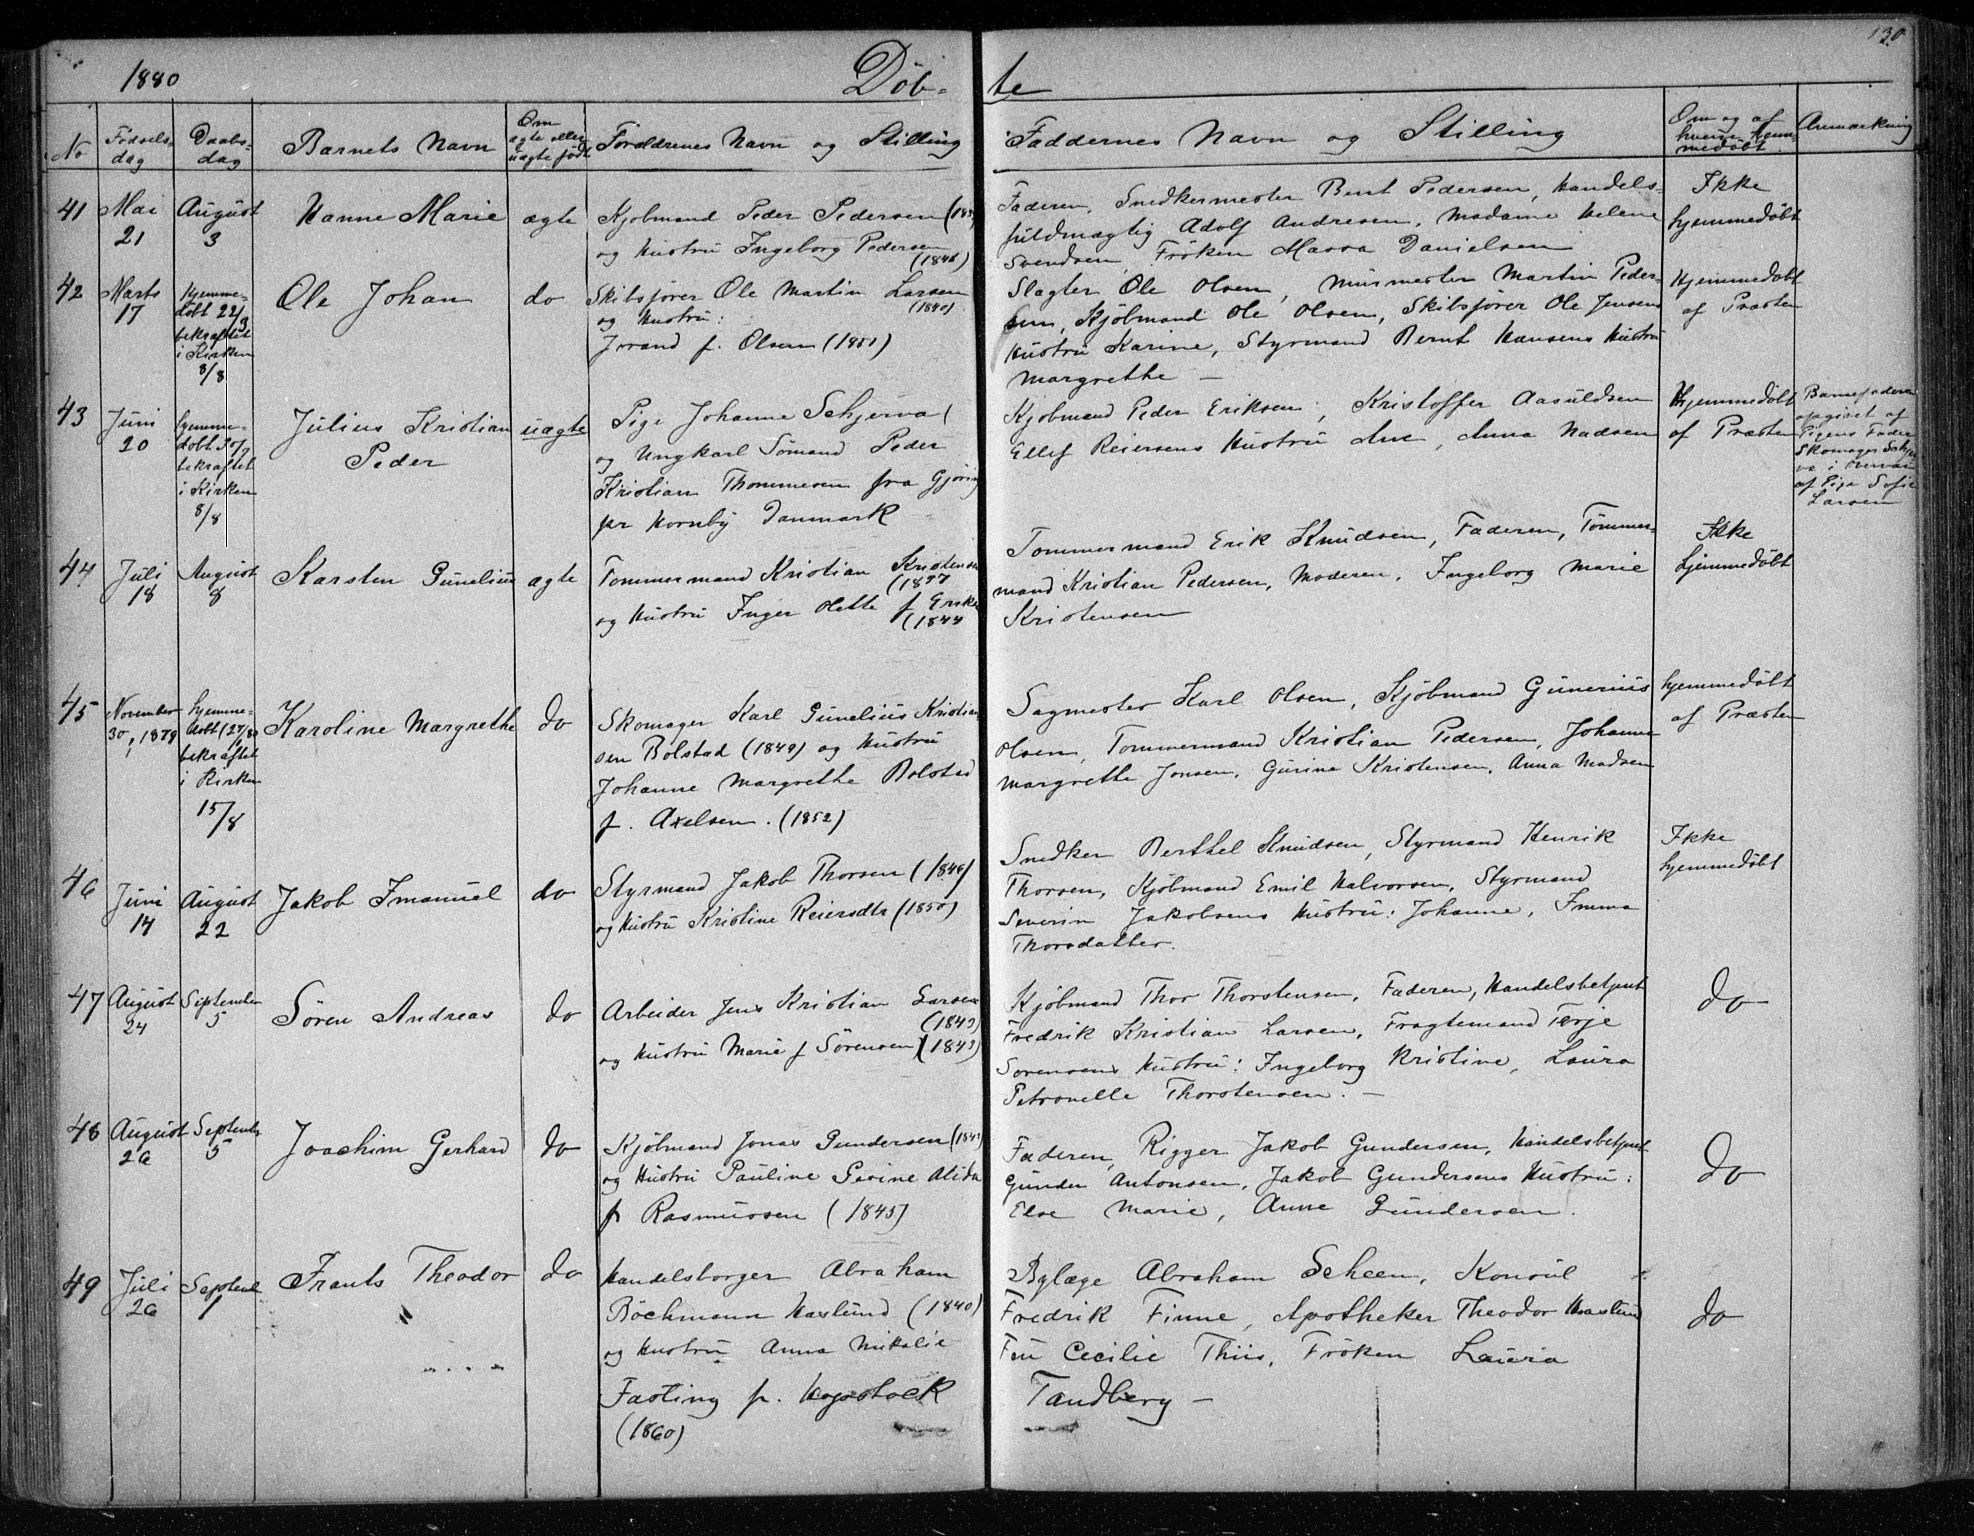 130
1880 Döb- te
No Fødsels- dag Daabs- dag Barnets Navn Om ægte eller uægte født Forældrenes Navn og Stilling Faddernes Navn og Stilling Om og af hvem hjem- medøbt Anmærkning
41 Mai 21 August 3 Hanne Marie ægte
Kjöbmand Peder Pedersen
og Hustru Ingeborg Pedersen
(1846)
Faderen, Snedkermester Bent Pedersen, Handels-
fuldmægtig Adolf Andresen, Madame Helene
Svendsen, Fröken Maren Danielsen
Ikke
hjemmedöbt
42 Marts 17
Hjemme-
döbt 22/3
bekræftet
i Kirken
8/8
Ole Johan do
Skibsfører Ole Martin Larsen
(1840)
og Hustru:
Jorand f. Olsen (1851)
Slagter Ole Olsen, Murmester Martin Peder-
sen, Kjöbmand Ole Olsen, Skibsfører Ole Jensens
Hustru Karine, Styrmand Bernt Hansens Hustru
Margrethe —
Hjemmedöbt
af Præsten
43 Juni 20
hjemme-
döbt 30/7
bekræftet
i Kirken
8/8
Julius Kristian
Peder
uægte
Pige Johanne Schjerva (
og Ungkarl Sömand Peder
Kristian Thommesen fra Gjöring
pr Hornby Danmark
Kjöbmand Peder Eriksen, Kristoffer Aasuldsen
Ellef Reiersens Hustru Ane, Anna Madsen
Hjemmedöbt
af Præsten
Barnefaderen
opgivet af
Pigens Fader
Skomager Schjer
va i
af Pige Sofie
Larsen
44 Juli 18 August 8 Karsten Gunelius ægte
Tømmermand Kristian Kristensen
og Hustru Inger Olette f Eriks
(1844
Tommermand Erik Knudsen, Faderen, Tömmer-
mand Kristian Pedersen, Moderen, Ingeborg Marie
Kristensen
Ikke
hjemmedöbt
45 November 30, 1879
hjemme-
döbt (27/ 80
bekræftet
i Kirken
15/8
Karoline Margrethe do
Skomager Karl Gunelius Kristian
sen Bolstad (1849) og Hustru
Johanne Margrethe Bolstad
f. Axelsen. (1852)
Sagmester Karl Olsen, Kjöbmand Gunerius
Olsen, Tommermand Kristian Pedersen, Johanne
Margrethe Jonsen, Gurine Kristensen, Anna Madsen
hjemmedöbt
af Præsten
46 Juni 14 August 22 Jakob Imanuel do
Styrmand Jakob Thorsen (1846)
og Hustru Kristine Reiersdtr (1850)
Snedker Berthel Knudsen, Styrmand Henrik
Thorsen, Kjöbmand Emil Halvorsen, Styrmand
Severin Jakobsens Hustru: Johanne, Emma
Thorsdatter.
Ikke
hjemmedöbt
47 August 24 September 5 Sören Andreas do
Arbeider Jens Kristian Larsen
(1843)
og Hustru Marie f Sörensen (1843)
Kjöbmand Thor Thorstensen, Faderen, Handelsbetjent
Fredrik Kristian Larsen, Fragtemand Terje
Sorensens Hustru: Ingeborg Kristine, Laura
Petronelle Thorstensen. —
do
48 August 26 September 5 Joachim Gerhard do
Kjöbmand Jonas Gundersen
og Hustru Pauline Serine Alida
f Rasmussen (1845)
Faderen, Rigger Jakob Gundersen, Handelsbetjent
Gunder Antonsen, Jakob Gundersens Hustru:
Else Marie, Anne Gundersen.
do
49 Juli 26 September 1 Frants Theodor do
Handelsborger Abraham
Böckmann Haslund (1840)
og Hustru Anna Nikolie
Fasting f. Kopstock
(1860)
Bylæge Abraham Scheen, Konsul
Fredrik Finne, Apotheker Theodor Haslund
Fru Cecilie Thiis, Fröken Laura
Tandberg —
do